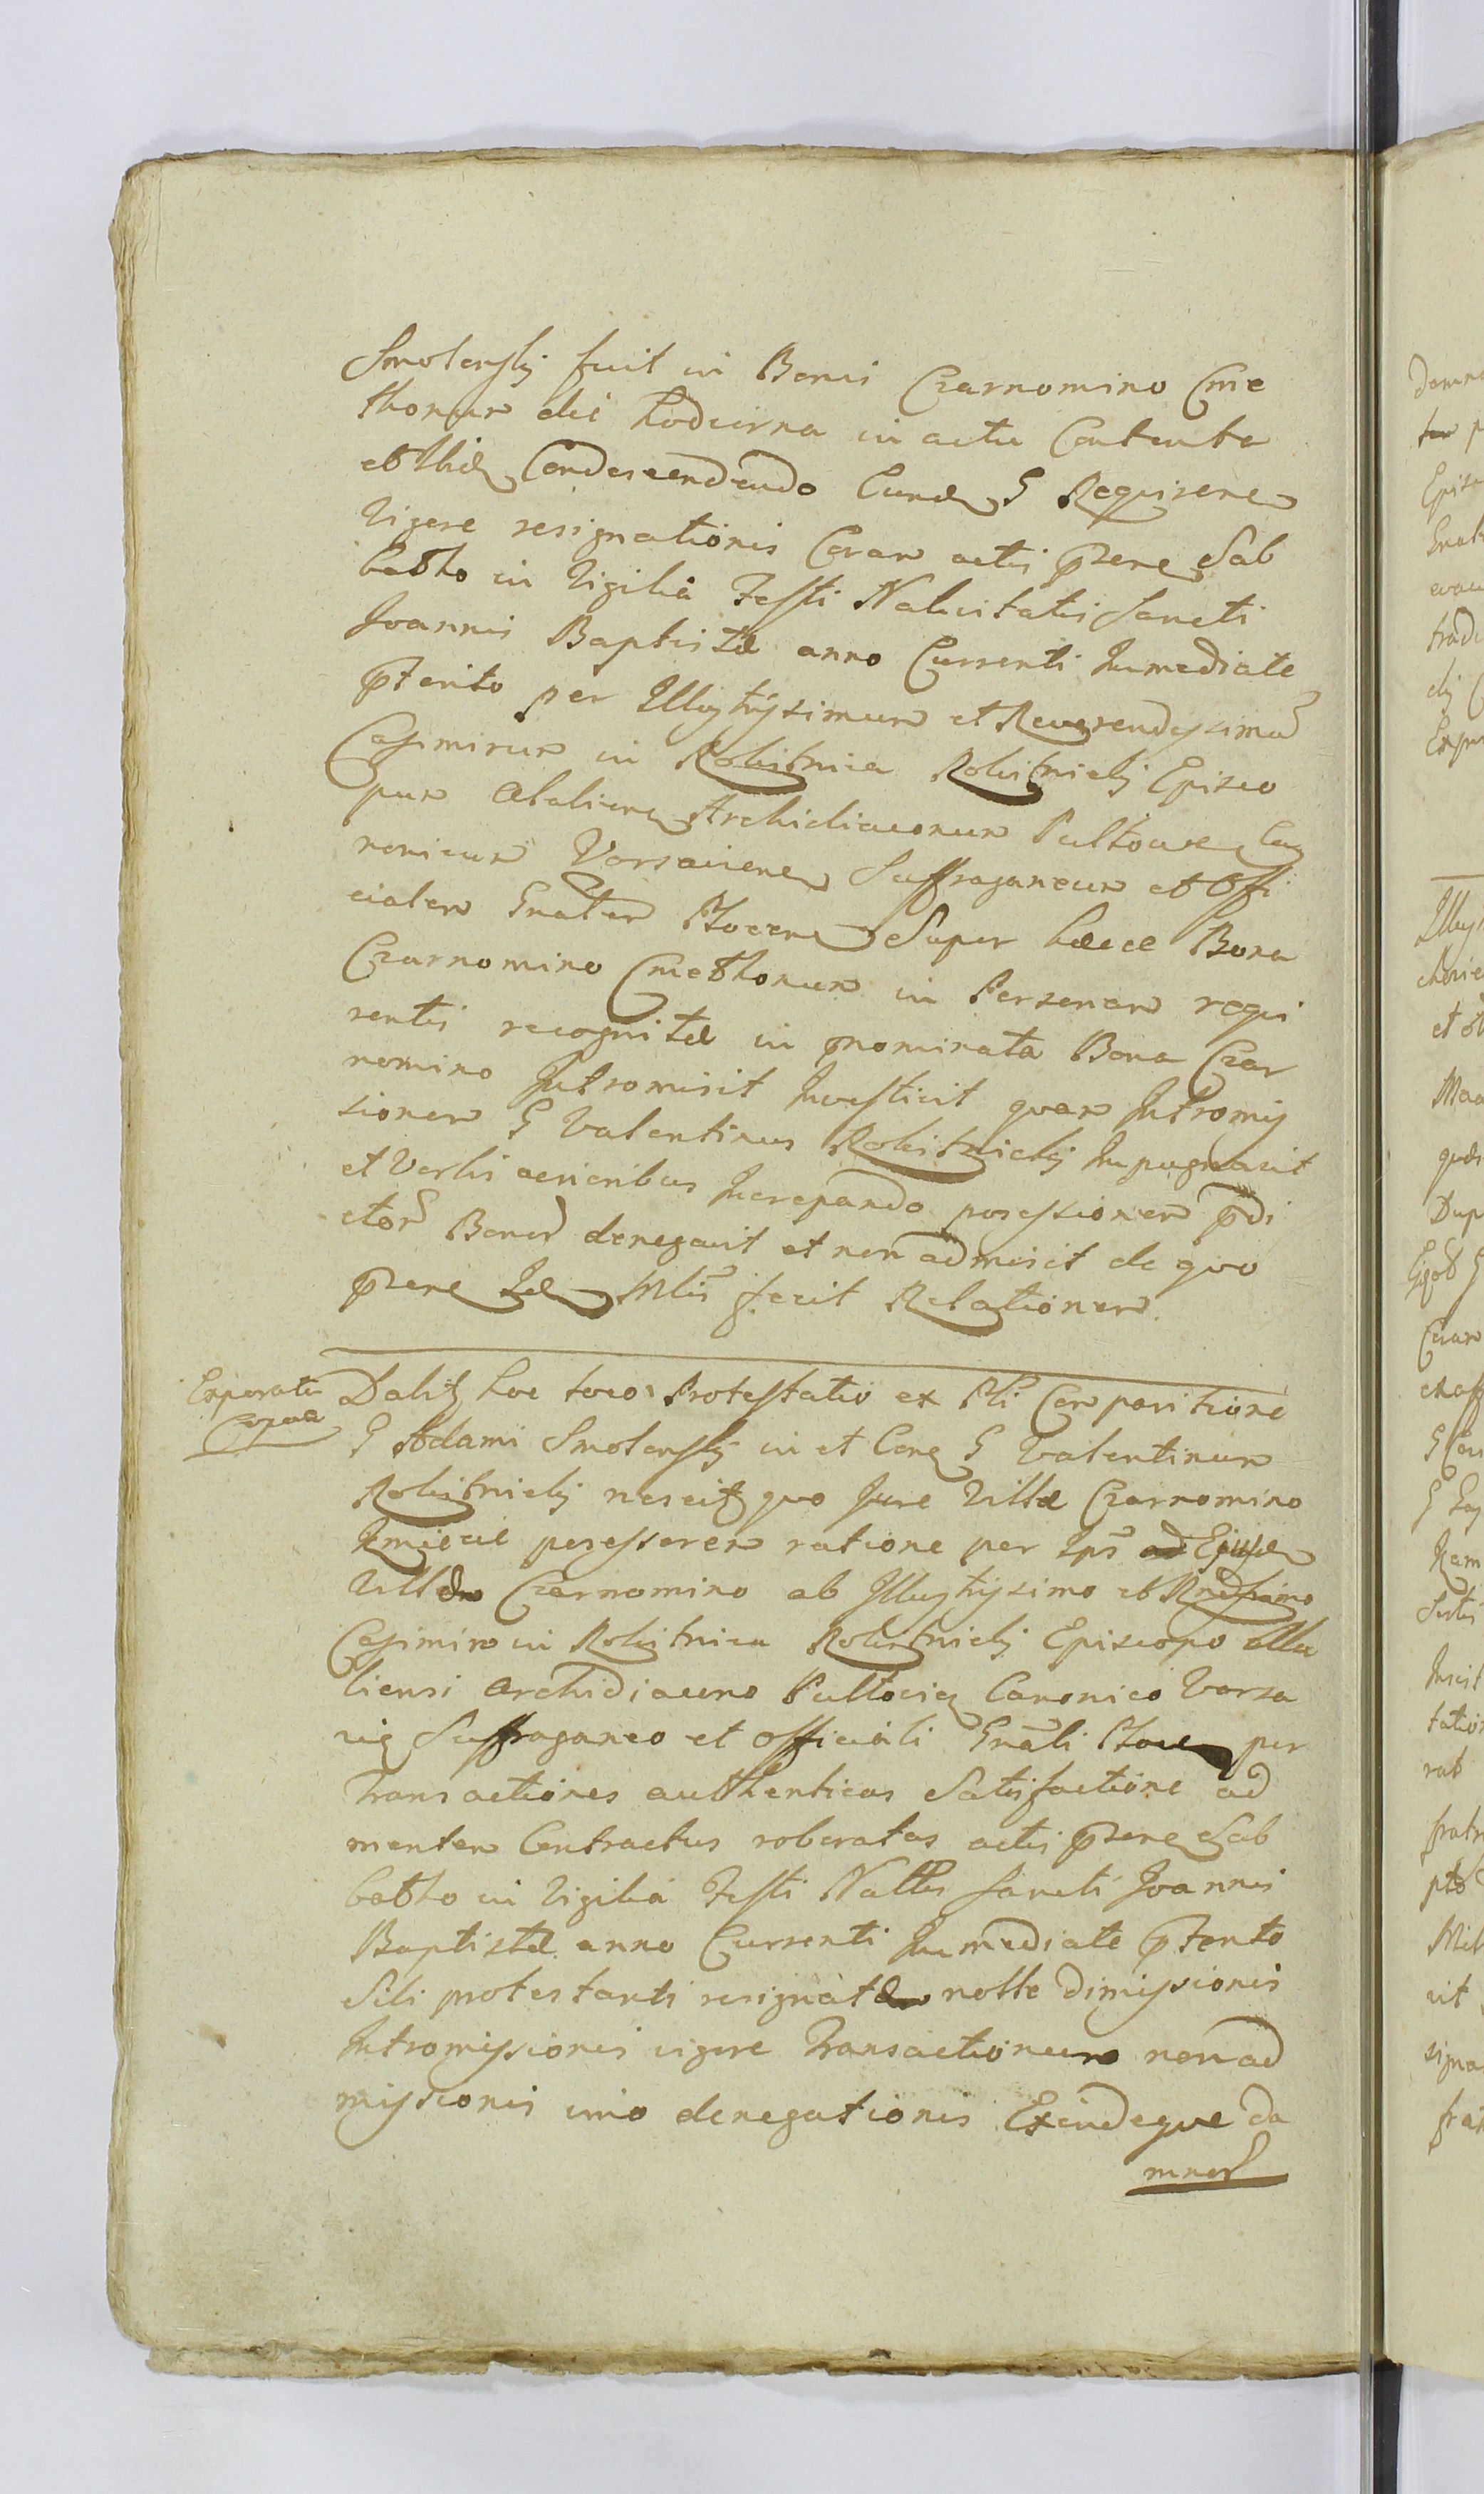 Smolenskj fuit in Bonis Czarnomino Cme
thonum die hodierna in actu Contenta
et ibidem Condescendendo Eundem G Requirenem
Vigore resignationis Coram actis pzene Sab
batho in Vigilia Festi Nativitatis Sancti
Joannis Baptistæ anno Currenti Immediate
pterito per Illustrissimum et Reverendissimum
Casimirum in Rokitnica Rokitnickj Episco
pum Ataliens Archidiaconum Pultovie Ca
nonicum Varsaviene Suffraganeum et Offi
cialem Gnalem Plocens Super hæcce Bona
Czarnomino Cmethonum in Personam requi
rentis recognitæ in pnominata Bona Czar
nomino Intromisit Investivit quam Intromis
sionem G Valentinus Rokitnickj Impugnavit
et Verbis acrioribus Increpando possessionem pdi
ctor Bonor denegavit et non admisit de quo
pzene Idem Mlis fecit Relationem.
Exportata
Copia
Dabit hoc loco Protestatio ex Pti Comparitione
G Adami Smolenskj in et Conq G Valentinum
Rokitnickj nescit quo Jure Villæ Czarnomino
Kmiecie possessorem ratione per Ips ad Ejusdem
Villæ Czarnomino ab Illustrissimo et Rndssimo
Casimiro in Rokitnica Rokitnickj Episcopo Atta
liensi Archidiacono Pultovien Canonico Varsa
vien Suffraganeo et Officiali Gnali Plocen per
Transactiones authenticas Satisfactione ad
mentem Contractus roboratas actis pzene Sab
batho in Vigilia Festi Nattis Sancti Joannis
Baptistæ anno Currenti Immediate pterito
Sibi protestanti resignatæ nolle dimissionis
Intromissionis vigore Transactionum non ad
missionis imo denegationis Exindeque da
mnor